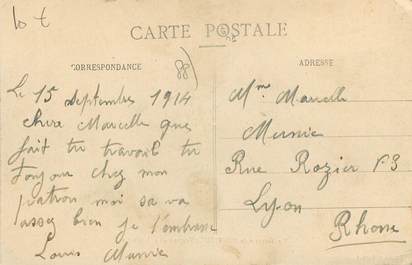 10 t
CARTE POSTALE
CORRESPONDANCE
88)
ADRESSE
Le 15 septembre 1914
chere Marcelle que
fait tu travail tu
toujour chez mon
patron moi sa va
assez bien je t'embrasse
Louis
Mme Marcelle
Rue Rozier
Lyon
Rhone